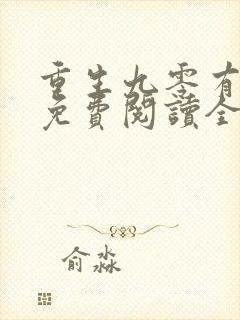 重生九零有
免費閱讀全
俞淼